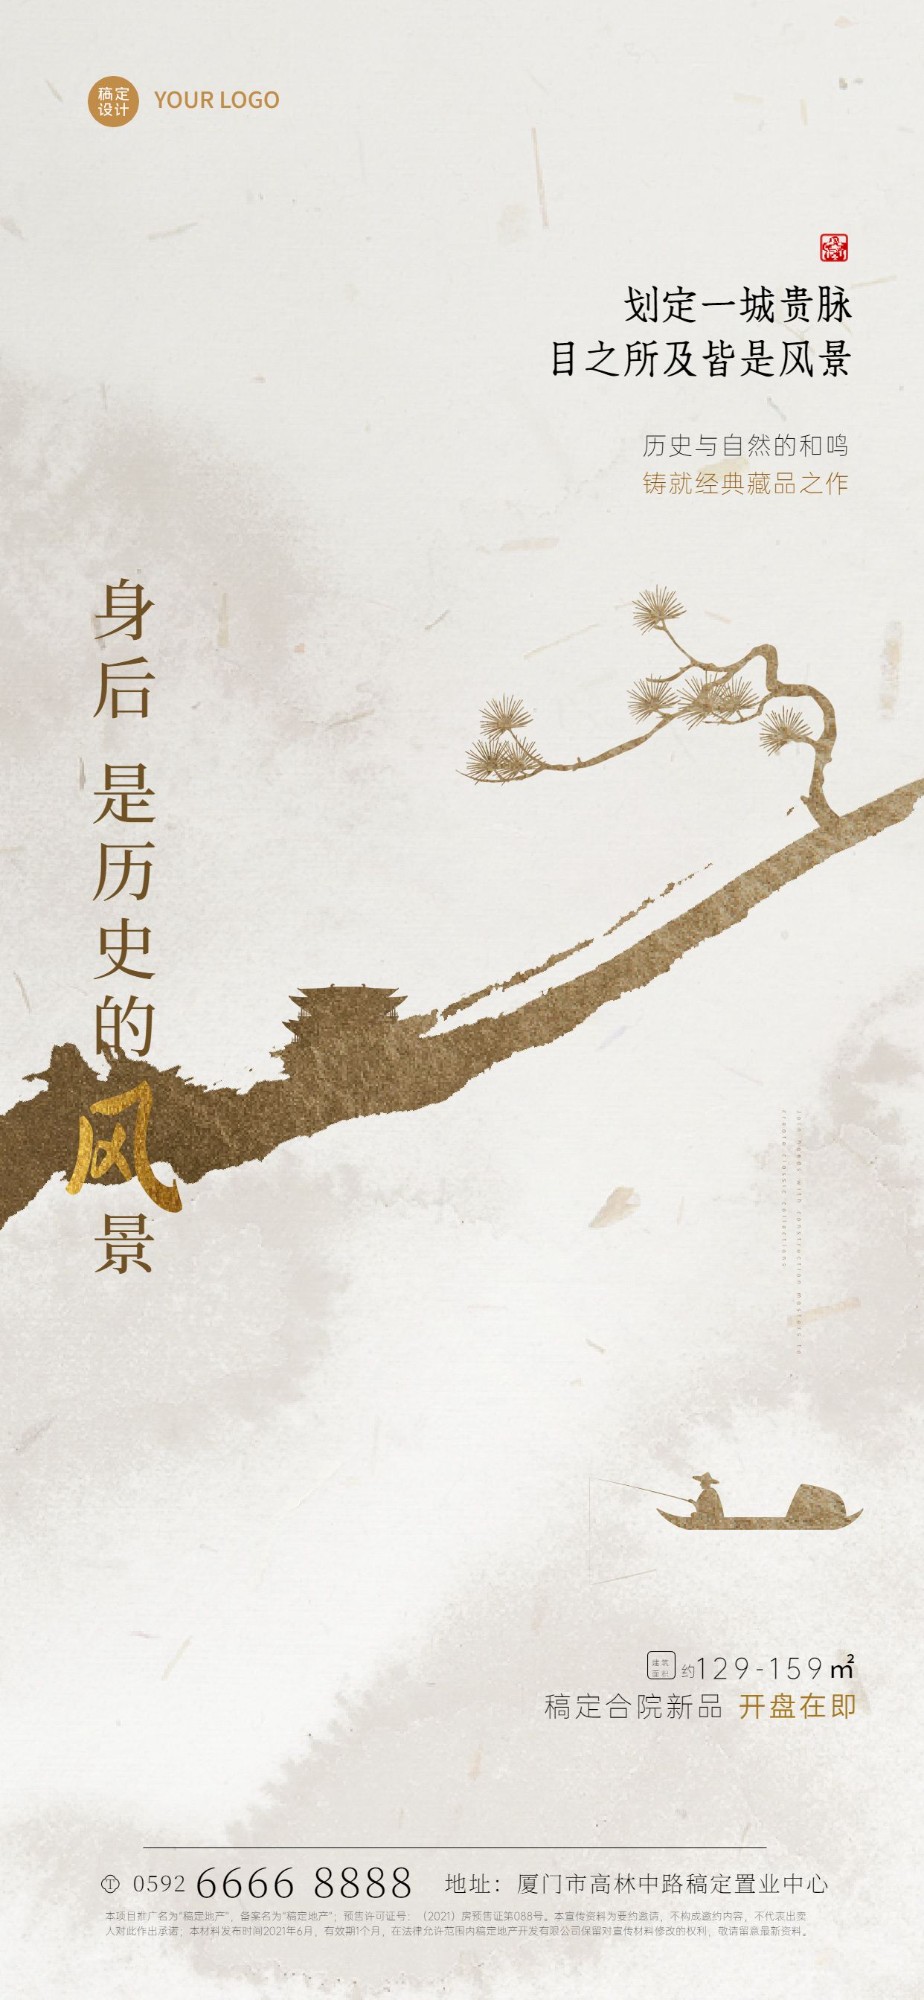 稿定
设计
YOUR LOGO
划定一城贵脉
目之所及皆是风景
历史与自然的和鸣
铸就经典藏品之作
身后 是历史的风景
建筑
面积
约129-159㎡
稿定合院新品 开盘在即
0592 6666 8888
地址：厦门市高林中路稿定置业中心
本项目推广名为“稿定地产”，备案名为“稿定地产”；预售许可证号：（2021）房预售证第088号。本宣传资料为要约邀请，不构成邀约内容，不代表出卖
人对此作出承诺；本材料发布时间2021年6月，有效期1个月，在法律允许范围内稿定地产开发有限公司保留对宣传材料修改的权利，敬请留意最新资料。